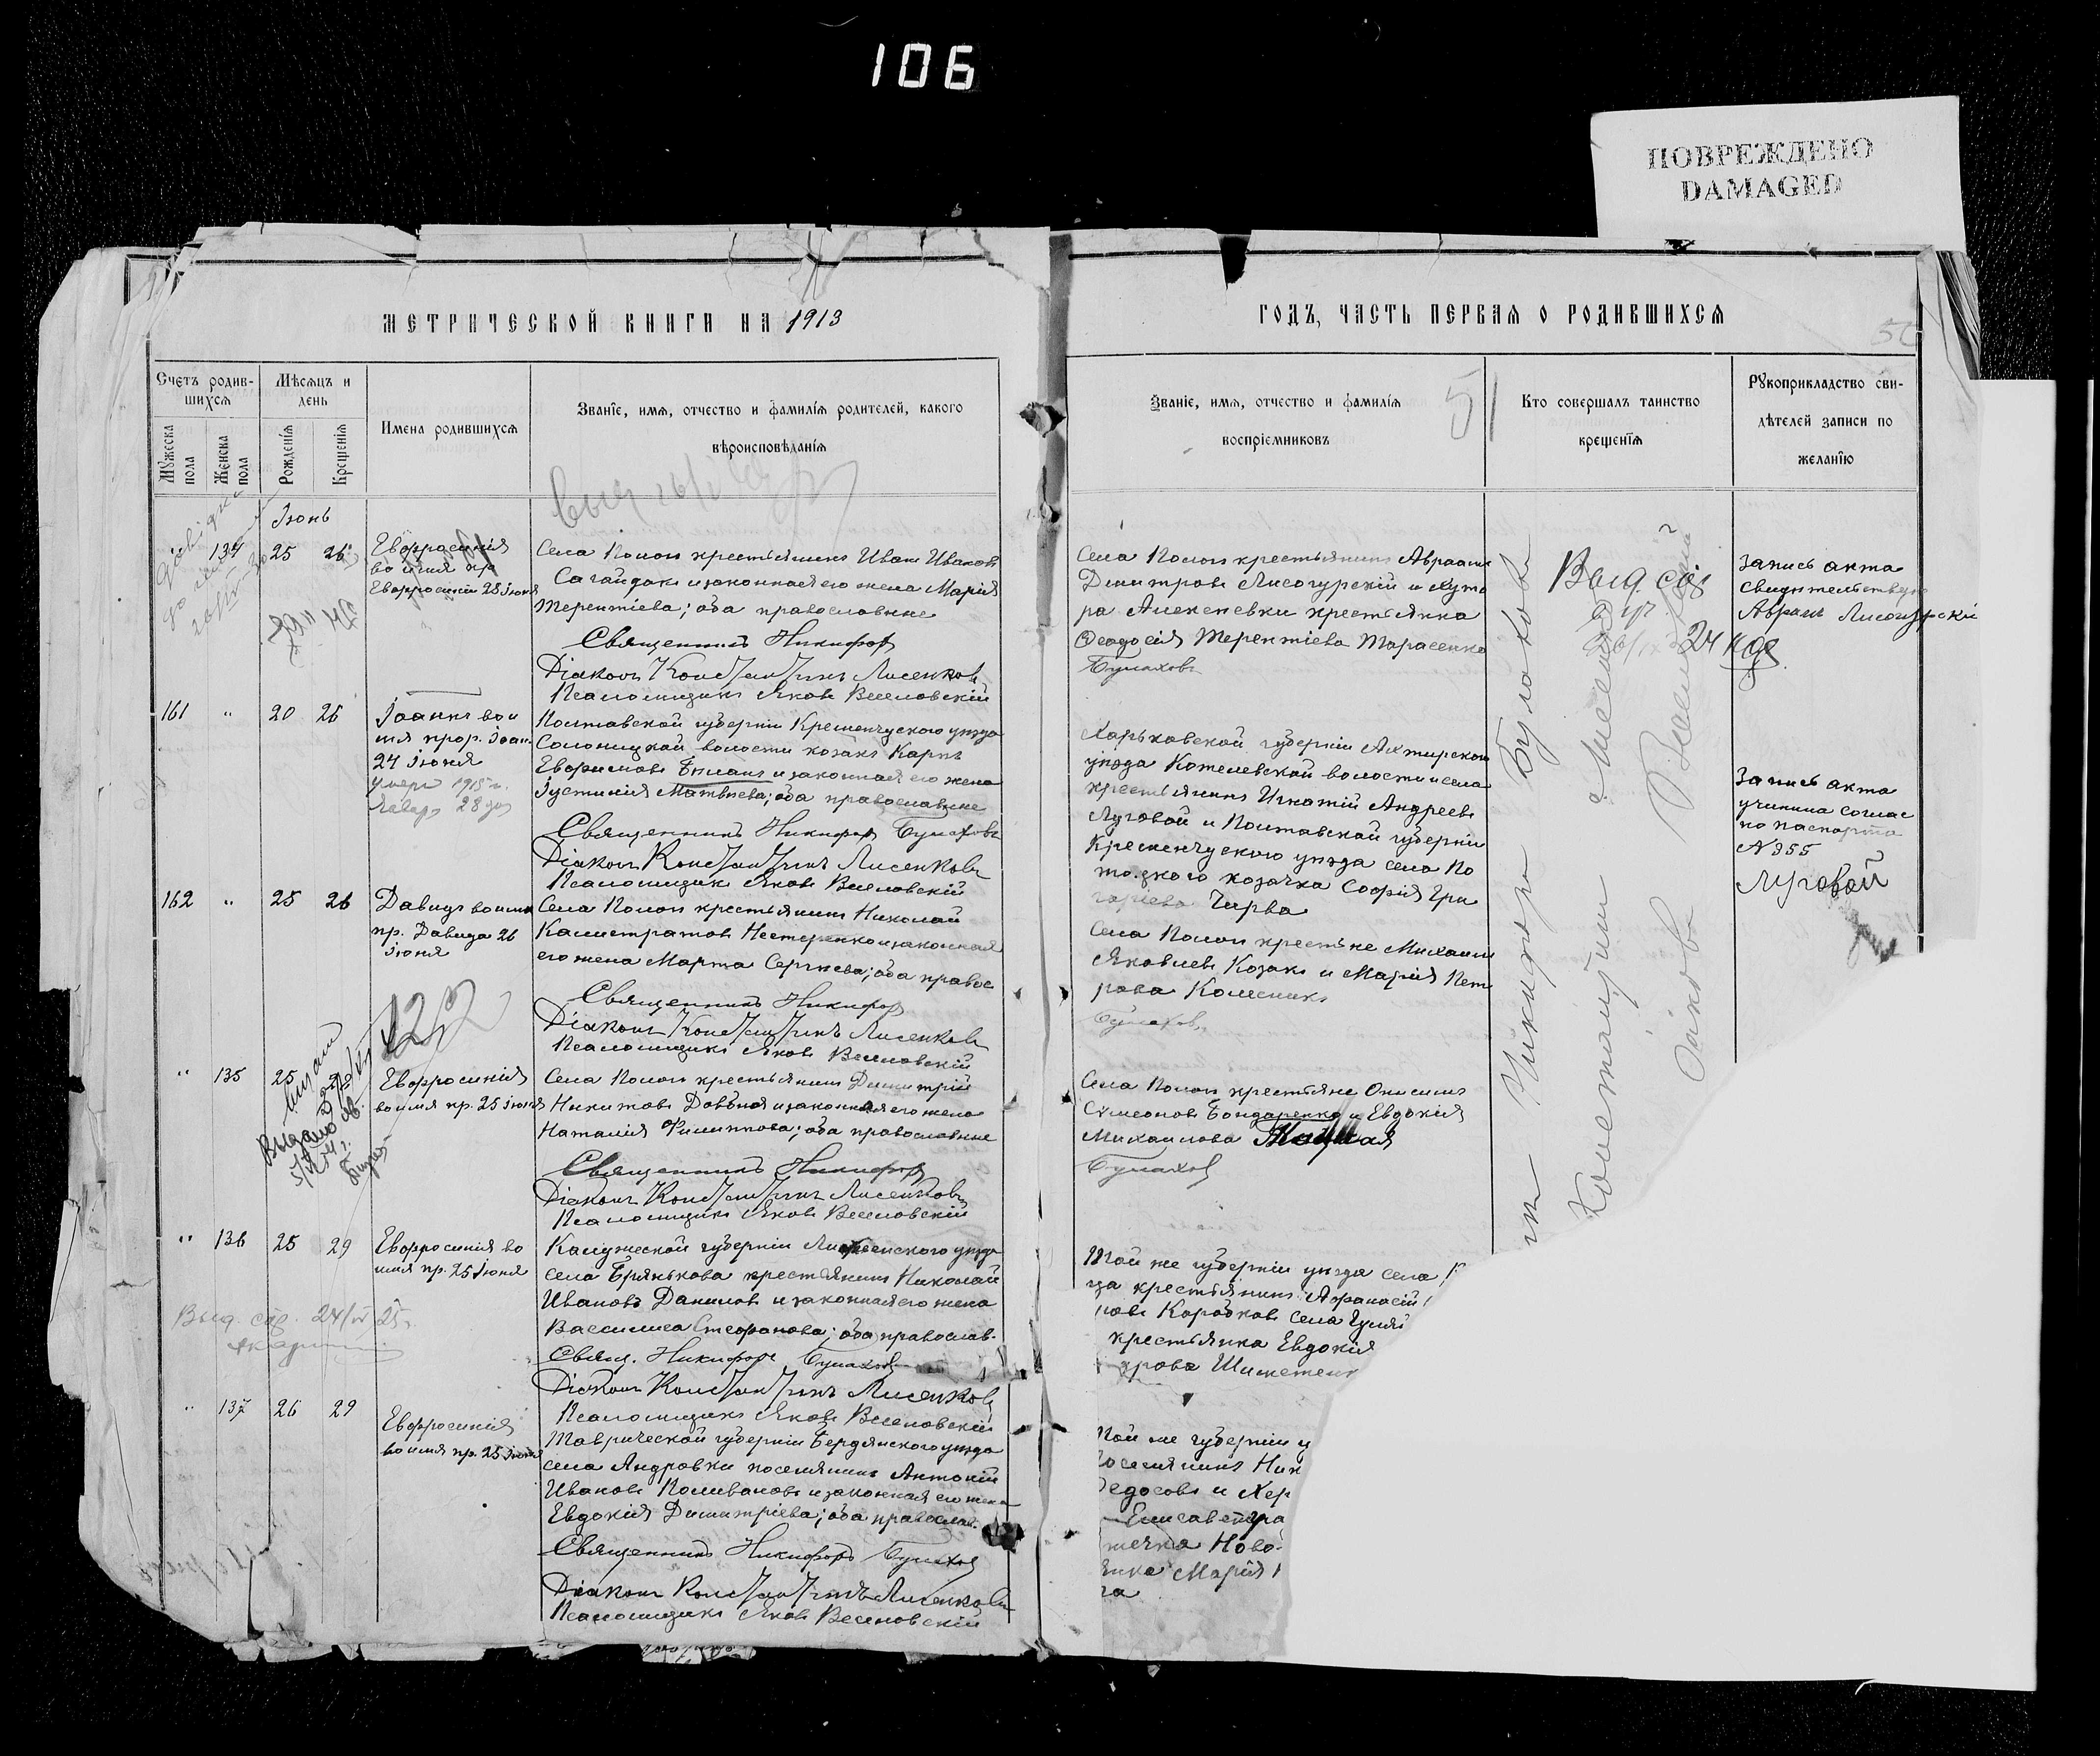 106
ПОВРЕЖДЕНО
DAMAGED
МЕТРИЧЕСКОЙ КНИГИ НА 1913
ГОДЪ, ЧАСТЬ ПЕРВАЯ О РОДИВШИХСЯ
51
Счетъ родив-
шихся
Мѣсяцъ и
день
Мужеска
пола
Женска
пола
Рожденія
Крещенія
Имена родившихся
Званіе, имя, отчество и фамилія родителей, какого
вѣроисповѣданія
Званіе, имя, отчество и фамилія
воспріемниковъ
Кто совершалъ таинство
крещенія
Рукоприкладство сви-
дѣтелей записи по
желанію
Іюнь
" 134 25 26
Евфросинія
во имя пр.
Евфросиніи 25 Іюня
Села Пологи крестьянинъ Иванъ Ивановъ
Сагайдакъ и законная его жена Марія
Терентіева; оба православные
Священникъ Никифоръ
Діаконъ Константинъ Лисенковъ
Псаломщикъ Яковъ Веселовскій
Села Пологи крестьянинъ Авраамъ
Димитровъ Лисогурскій и хуто
ра Алексеевки крестьянка
Феодосія Терентіева Тарасенко
Булаховъ
Запись акта
свидетельствую
Авраам Лисогурскій
161 " 20 26
Іоаннъ во и
мя прор. Іоан.
24 Іюня
умеръ 1915 г.
Январ 28 дня
Полтавской губерніи Кременчугского уезда
Солоницкой волости козакъ Карпъ
Евфимовъ Билапъ и законная его жена
Іустинія Матвеева; оба православные
Священникъ Никифоръ Булаховъ
Діаконъ Константинъ Лисенковъ
Псаломщикъ Яковъ Веселовскій
Харьковской губерніи Ахтирского
уезда Котелевской волости и села
крестьянинъ Игнатій Андреевъ
Луговой и Полтавской губерніи
Кременчугского уезда села По
козачка Софія Гри
горіева Чирва
Запись акта
учинина соглас
но паспорта
N 355
Луговой
162 " 25 26
Давидъ во имя
пр. Давида 26
Іюня
Села Пологи крестьянинъ Николай
Калистратовъ Нестеренко и законная
его жена Марта Сергеева; оба правос
Священникъ Никифоръ
Діаконъ Константинъ Лисенковъ
Псаломщикъ Яковъ Веселовскій
Села Пологи крестьяне Михаилъ
Яковлевъ Козакъ и Марія Пет
рова Колесникъ
Булаховъ
" 135 25
Евфросинія
во имя пр. 25 Іюня
Села Пологи крестьянинъ Димитрій
Никитовъ Довбня и законная его жена
Наталія Филиппова; оба православные
Священникъ Никифоръ
Діаконъ Константинъ Лисенковъ
Псаломщикъ Яковъ Веселовскій
Села Пологи крестьяне Онисимъ
Симеоновъ Бондаренко и Евдокія
Михаилова
Булаховъ
" 136 25 29
Евфросинія во
имя пр. 25 Іюня
Калужской губерніи уезда
села Брянькова крестьянинъ Николай
Ивановъ Даниловъ и законная его жена
Василиса Стефанова; оба православ.
Свящ. Никифоръ Булаховъ
Діаконъ Константинъ Лисенковъ
Псаломщикъ Яковъ Веселовскій
Той же губерніи уезда села
ца крестьянинъ Афанасій
новъ Коробковъ села
крестьянка Евдокія
Выд. 24/
" 137 26 29
Евфросинія
во имя пр. 25 Іюня
Таврической губерніи Бердянского уезда
села Андровки поселянинъ Антоній
Ивановъ Поливановъ и законная его жена
Евдокія Димитріева; оба православ.
Священникъ Никифоръ Булахов
Діаконъ Константинъ Лисенковъ
Псаломщикъ Яковъ Веселовскій
Той же губерніи у
оселянинъ Ник
едосовъ и Хер
Елисаветгра
мечка Ново-
янка Марія
ва
Никифоръ Булаховъ
Константинъ Лисенковъ
Яковъ Веселовскій